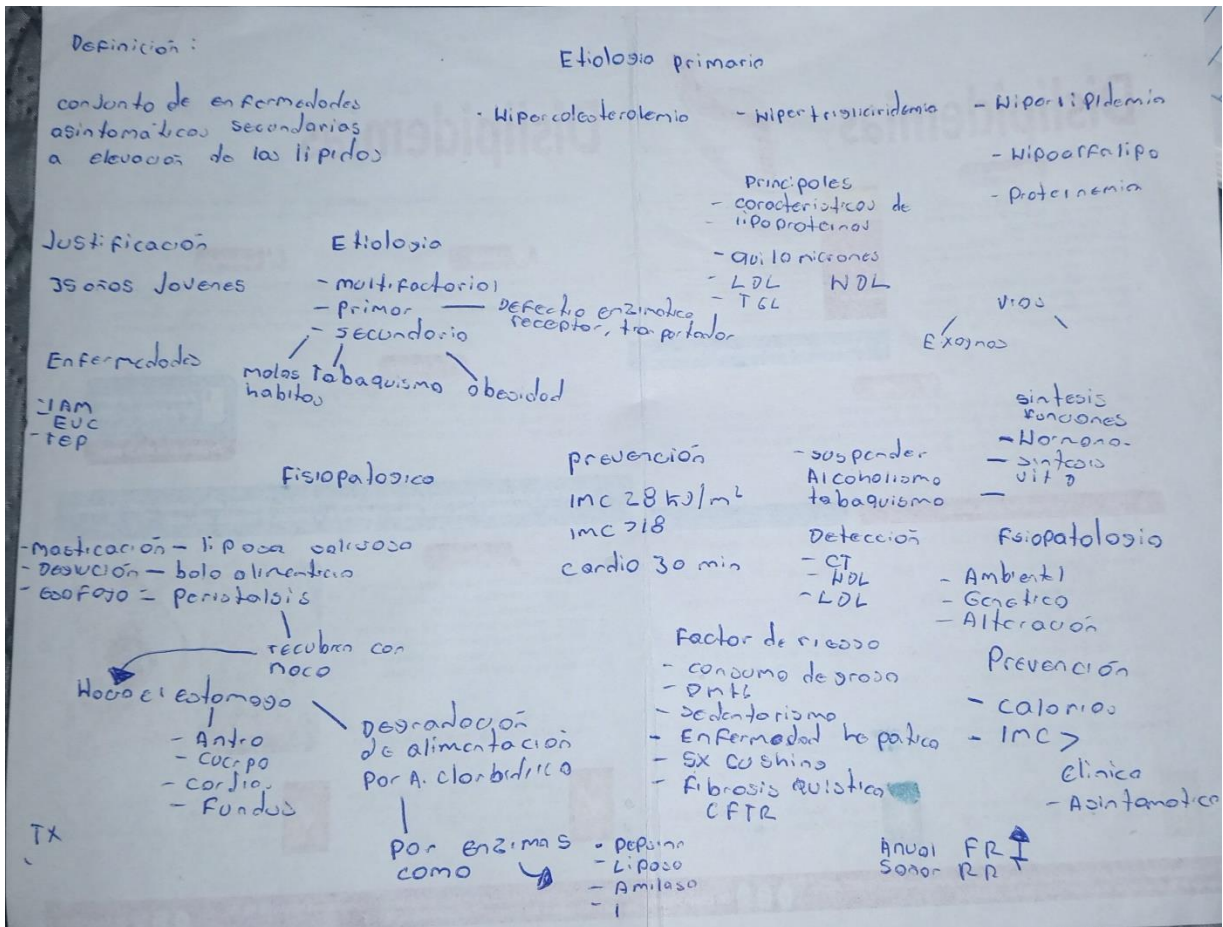 Definición:
conjunto de enfermedades
asintomáticas secundarias
a elevación de los lípidos
Etiologia primaria
- Hipercolesterolemia
- Hipertrigliciridemia
- Hiperlipidemia
- Hipoalfalipo
- Proteinemia
Principales
- caracteristicas de
- lipoproteinas
- quilomicrones
- LDL HDL
- TGL
Vias
Exognas
sintesis
funciones
- Hormona.
- sintesis
vit D
-
Justificación
35 años Jovenes
Etiologia
- multifactorial
- primar — Defecto enzimatico
receptor, traportador
- secundario
malos habitos
Tabaquismo
obesidad
Enfermedades
- IAM
- EVC
- TEP
Fisiopalogico
- masticación - lipasa salivosa
- Deglución - bolo alimenticio
- esofago = Peristalsis
recubren con
moco
Hacia el estomago
- Antro
- Cuerpo
- Cardia.
- Fundus
Degradación
de alimentación
por A. clorhidrico
Por enzimas
como
- Pepsina
- Lipasa
- Amilasa
- l
TX
prevención
IMC 28 kg/m²
IMC >18
cardio 30 min
- suspender
Alcoholismo
tabaquismo
Detección
- CT
- HDL
- LDL
Fsiopatologia
- Ambientl
- Genetico
- Alteración
Factor de riesgo
- consumo de grasa
- DMt2
- sedentarismo
- Enfermedad hepatica
- SX cushing
- Fibrosis Quistica
CFTR
Prevención
- calorias
- IMC >
Clinica
- Asintomatica
Anual FR
RR